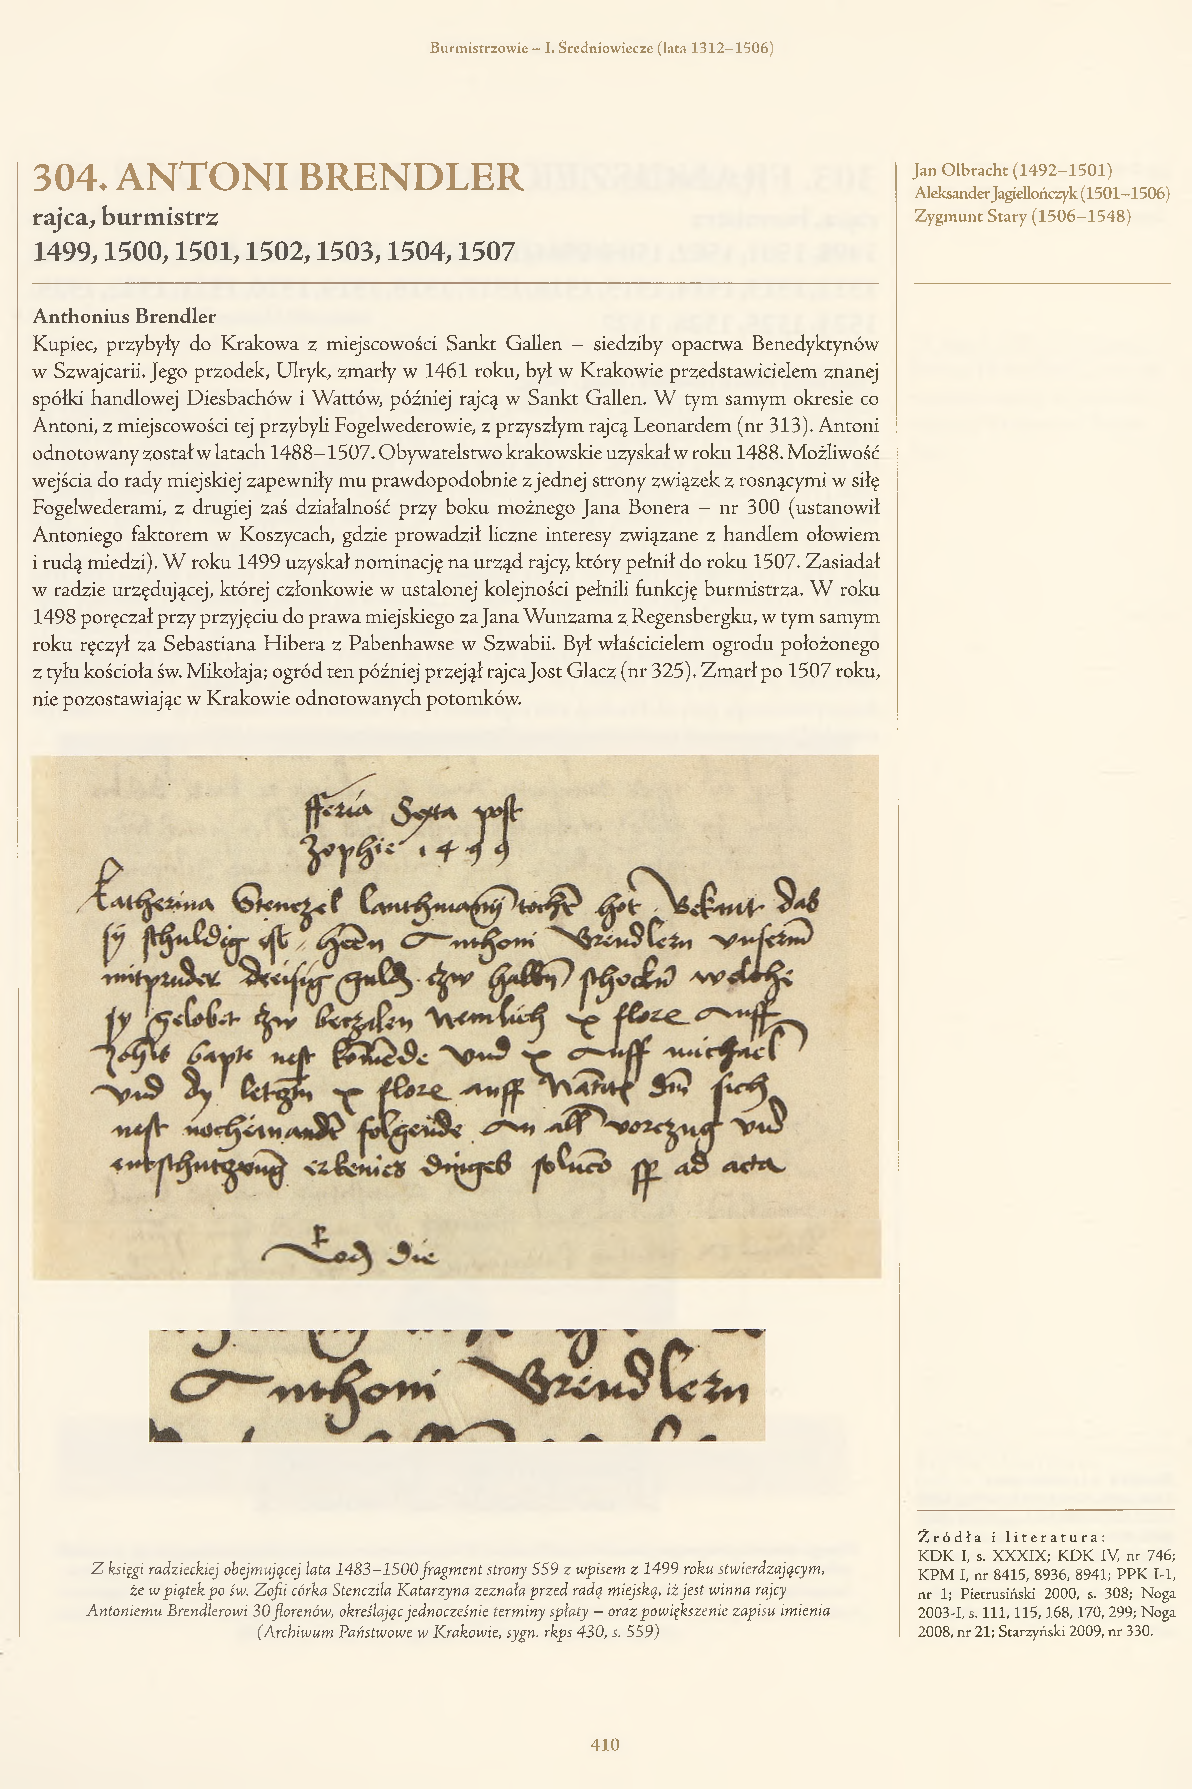 Burmistrzowie – I. Średniowiecze (lata 1312–1506)
304. ANTONI BRENDLER
rajca, burmistrz
1499, 1500, 1501, 1502, 1503, 1504, 1507
Jan Olbracht (1492–1501)
Aleksander Jagiellończyk (1501–1506)
Zygmunt Stary (1506–1548)
Anthonius Brendler
Kupiec, przybyły do Krakowa z miejscowości Sankt Gallen – siedziby opactwa Benedyktynów
w Szwajcarii. Jego przodek, Ulryk, zmarły w 1461 roku, był w Krakowie przedstawicielem znanej
spółki handlowej Diesbachów i Wattów, później rajcą w Sankt Gallen. W tym samym okresie co
Antoni, z miejscowości tej przybyli Fogelwederowie, z przyszłym rajcą Leonardem (nr 313). Antoni
odnotowany został w latach 1488–1507. Obywatelstwo krakowskie uzyskał w roku 1488. Możliwość
wejścia do rady miejskiej zapewniły mu prawdopodobnie z jednej strony związek z rosnącymi w siłę
Fogelwederami, z drugiej zaś działalność przy boku możnego Jana Bonera – nr 300 (ustanowił
Antoniego faktorem w Koszycach, gdzie prowadził liczne interesy związane z handlem ołowiem
i rudą miedzi). W roku 1499 uzyskał nominację na urząd rajcy, który pełnił do roku 1507. Zasiadał
w radzie urzędującej, której członkowie w ustalonej kolejności pełnili funkcję burmistrza. W roku
1498 poręczał przy przyjęciu do prawa miejskiego za Jana Wunzama z Regensbergku, w tym samym
roku ręczył za Sebastiana Hibera z Pabenhawse w Szwabii. Był właścicielem ogrodu położonego
z tyłu kościoła św. Mikołaja; ogród ten później przejął rajca Jost Glacz (nr 325). Zmarł po 1507 roku,
nie pozostawiając w Krakowie odnotowanych potomków.
fferia Sexta post
Zophie 1499
Katherina Stenczel hot Bekant das
sy schuldig ist Anthoni Brendlern
mitpruder dreisig guld czw welche
sy gelobet czw beczalen Nemlich x flore Auff
bapte nest vnd x Auff michael
vnd dy x flore auff sich
nest folgende An all vorczug vnd
dinges ad acta
die
Anthoni Brendlern
Z księgi radzieckiej obejmującej lata 1483–1500 fragment strony 559 z wpisem z 1499 roku stwierdzającym,
że w piątek po św. Zofii córka Stenczila Katarzyna zeznała przed radą miejską, iż jest winna rajcy
Antoniemu Brendlerowi 30 florenów, określając jednocześnie terminy spłaty – oraz powiększenie zapisu imienia
(Archiwum Państwowe w Krakowie, sygn. rkps 430, s. 559)
Źródła i literatura:
KDK I, s. XXXIX; KDK IV, nr 746;
KPM I, nr 8415, 8936, 8941; PPK I-1,
nr 1; Pietrusiński 2000, s. 308; Noga
2003-I, s. 111, 115, 168, 170, 299; Noga
2008, nr 21; Starzyński 2009, nr 330.
410